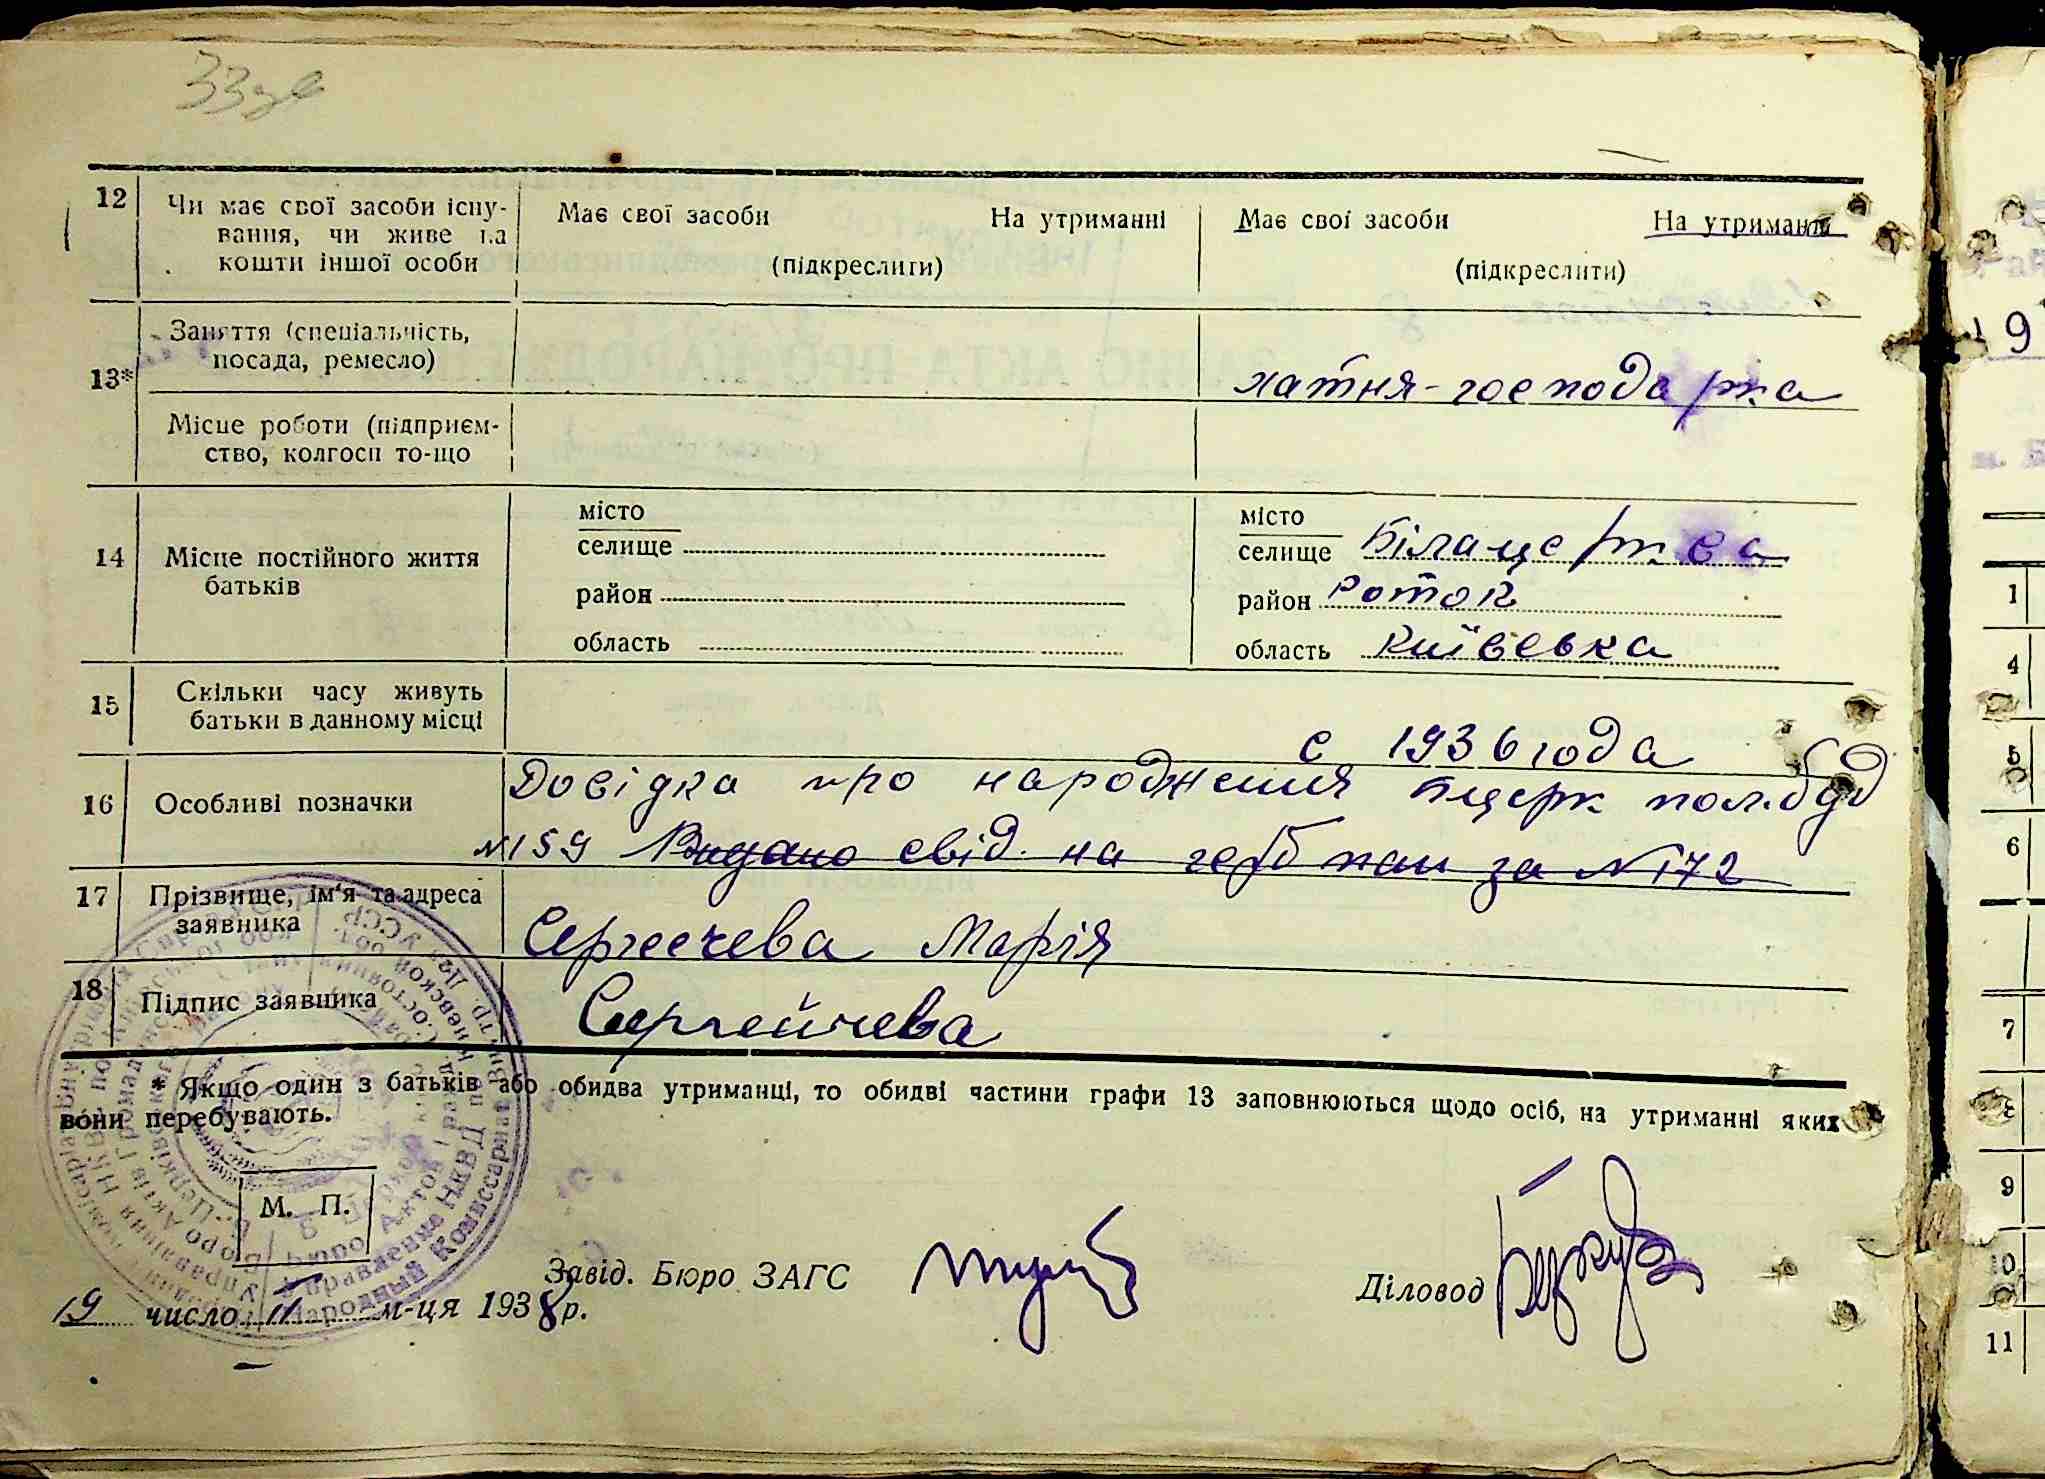 33
12
Чи має свої засоби існу-
вання, чи живе на
кошти іншої особи
Має свої засоби На утриманні
(підкреслити)
Має свої засоби На утриманні
(підкреслити)
13*
Заняття (спеціальність,
посада, ремесло)
хатня-господарка
Місце роботи (підприєм-
ство, колгосп то-що
14
Місце постійного життя
батьків
місто
селище
район
область
місто
селище Білацерква
район Роток
область Київська
15
Скільки часу живуть
батьки в данному місці
с 1936 года
16
Особливі позначки
Довідка про народження Бцерк пол.буд
№159 Видано свід. на за №172
17
Прізвище, ім'я та адреса
заявника
Сергеечева Марія
18
Підпис заявника
Сергейчева
* Якщо один з батьків або обидва утриманці, то обидві частини графи 13 заповнюються щодо осіб, на утриманні яких
вони перебувають.
М. П.
Завід. Бюро ЗАГС
Діловод
19 число II м-ця 1938 р.
19
1
4
5
6
7
8
9
10
11